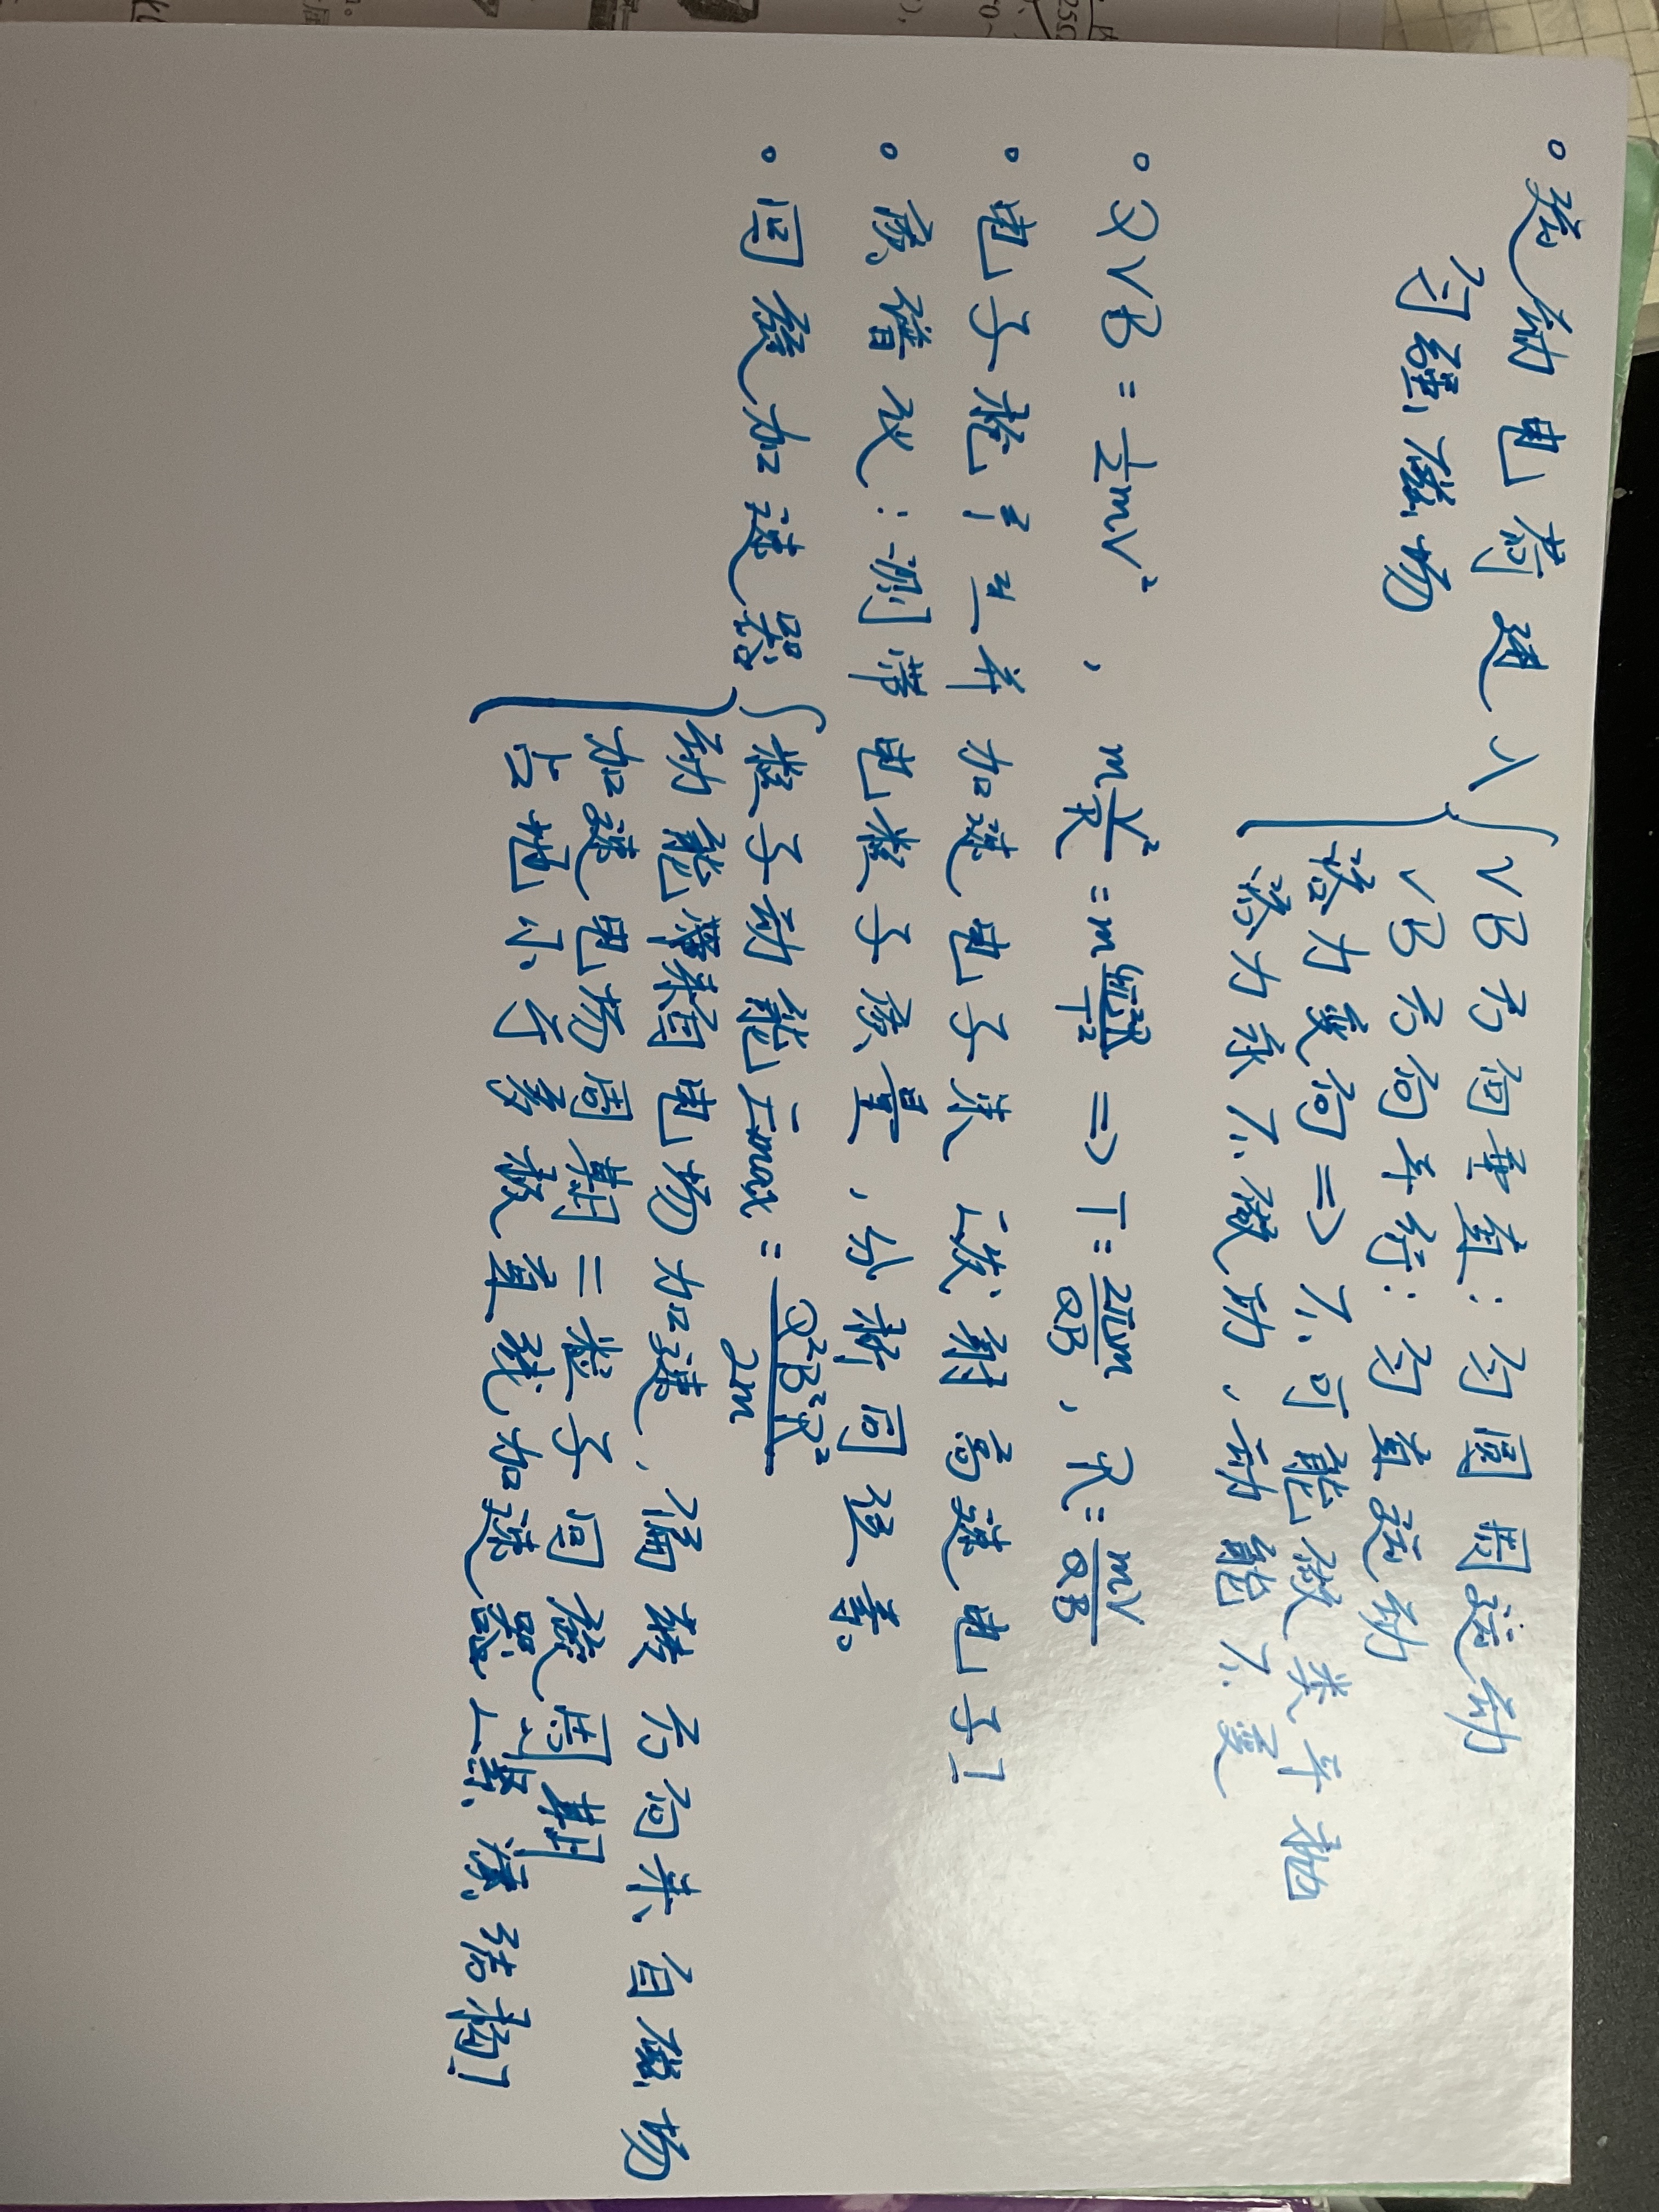 。运动电荷进入 { VB方向垂直: 匀圆周运动
匀强磁场 VB方向平行: 匀直运动
洛力变向 => 不可能做类平抛
洛力永不做功,动能不变
。QVB = 1/2 mV² , m V²/R = m 4π²R/T² => T = 2πm/QB , R = mV/QB
。电子枪 [ 产生并加速电子束 [ 发射高速电子 ]
。质谱仪: 测带电粒子质量,分析同位素。
。回旋加速器 { 粒子动能 [ max = Q²B²R²/2m
动能来自电场加速,偏转方向来自磁场
加速电场周期 = 粒子回旋周期
占地小于多级直线加速器 [ 紧凑结构 ]